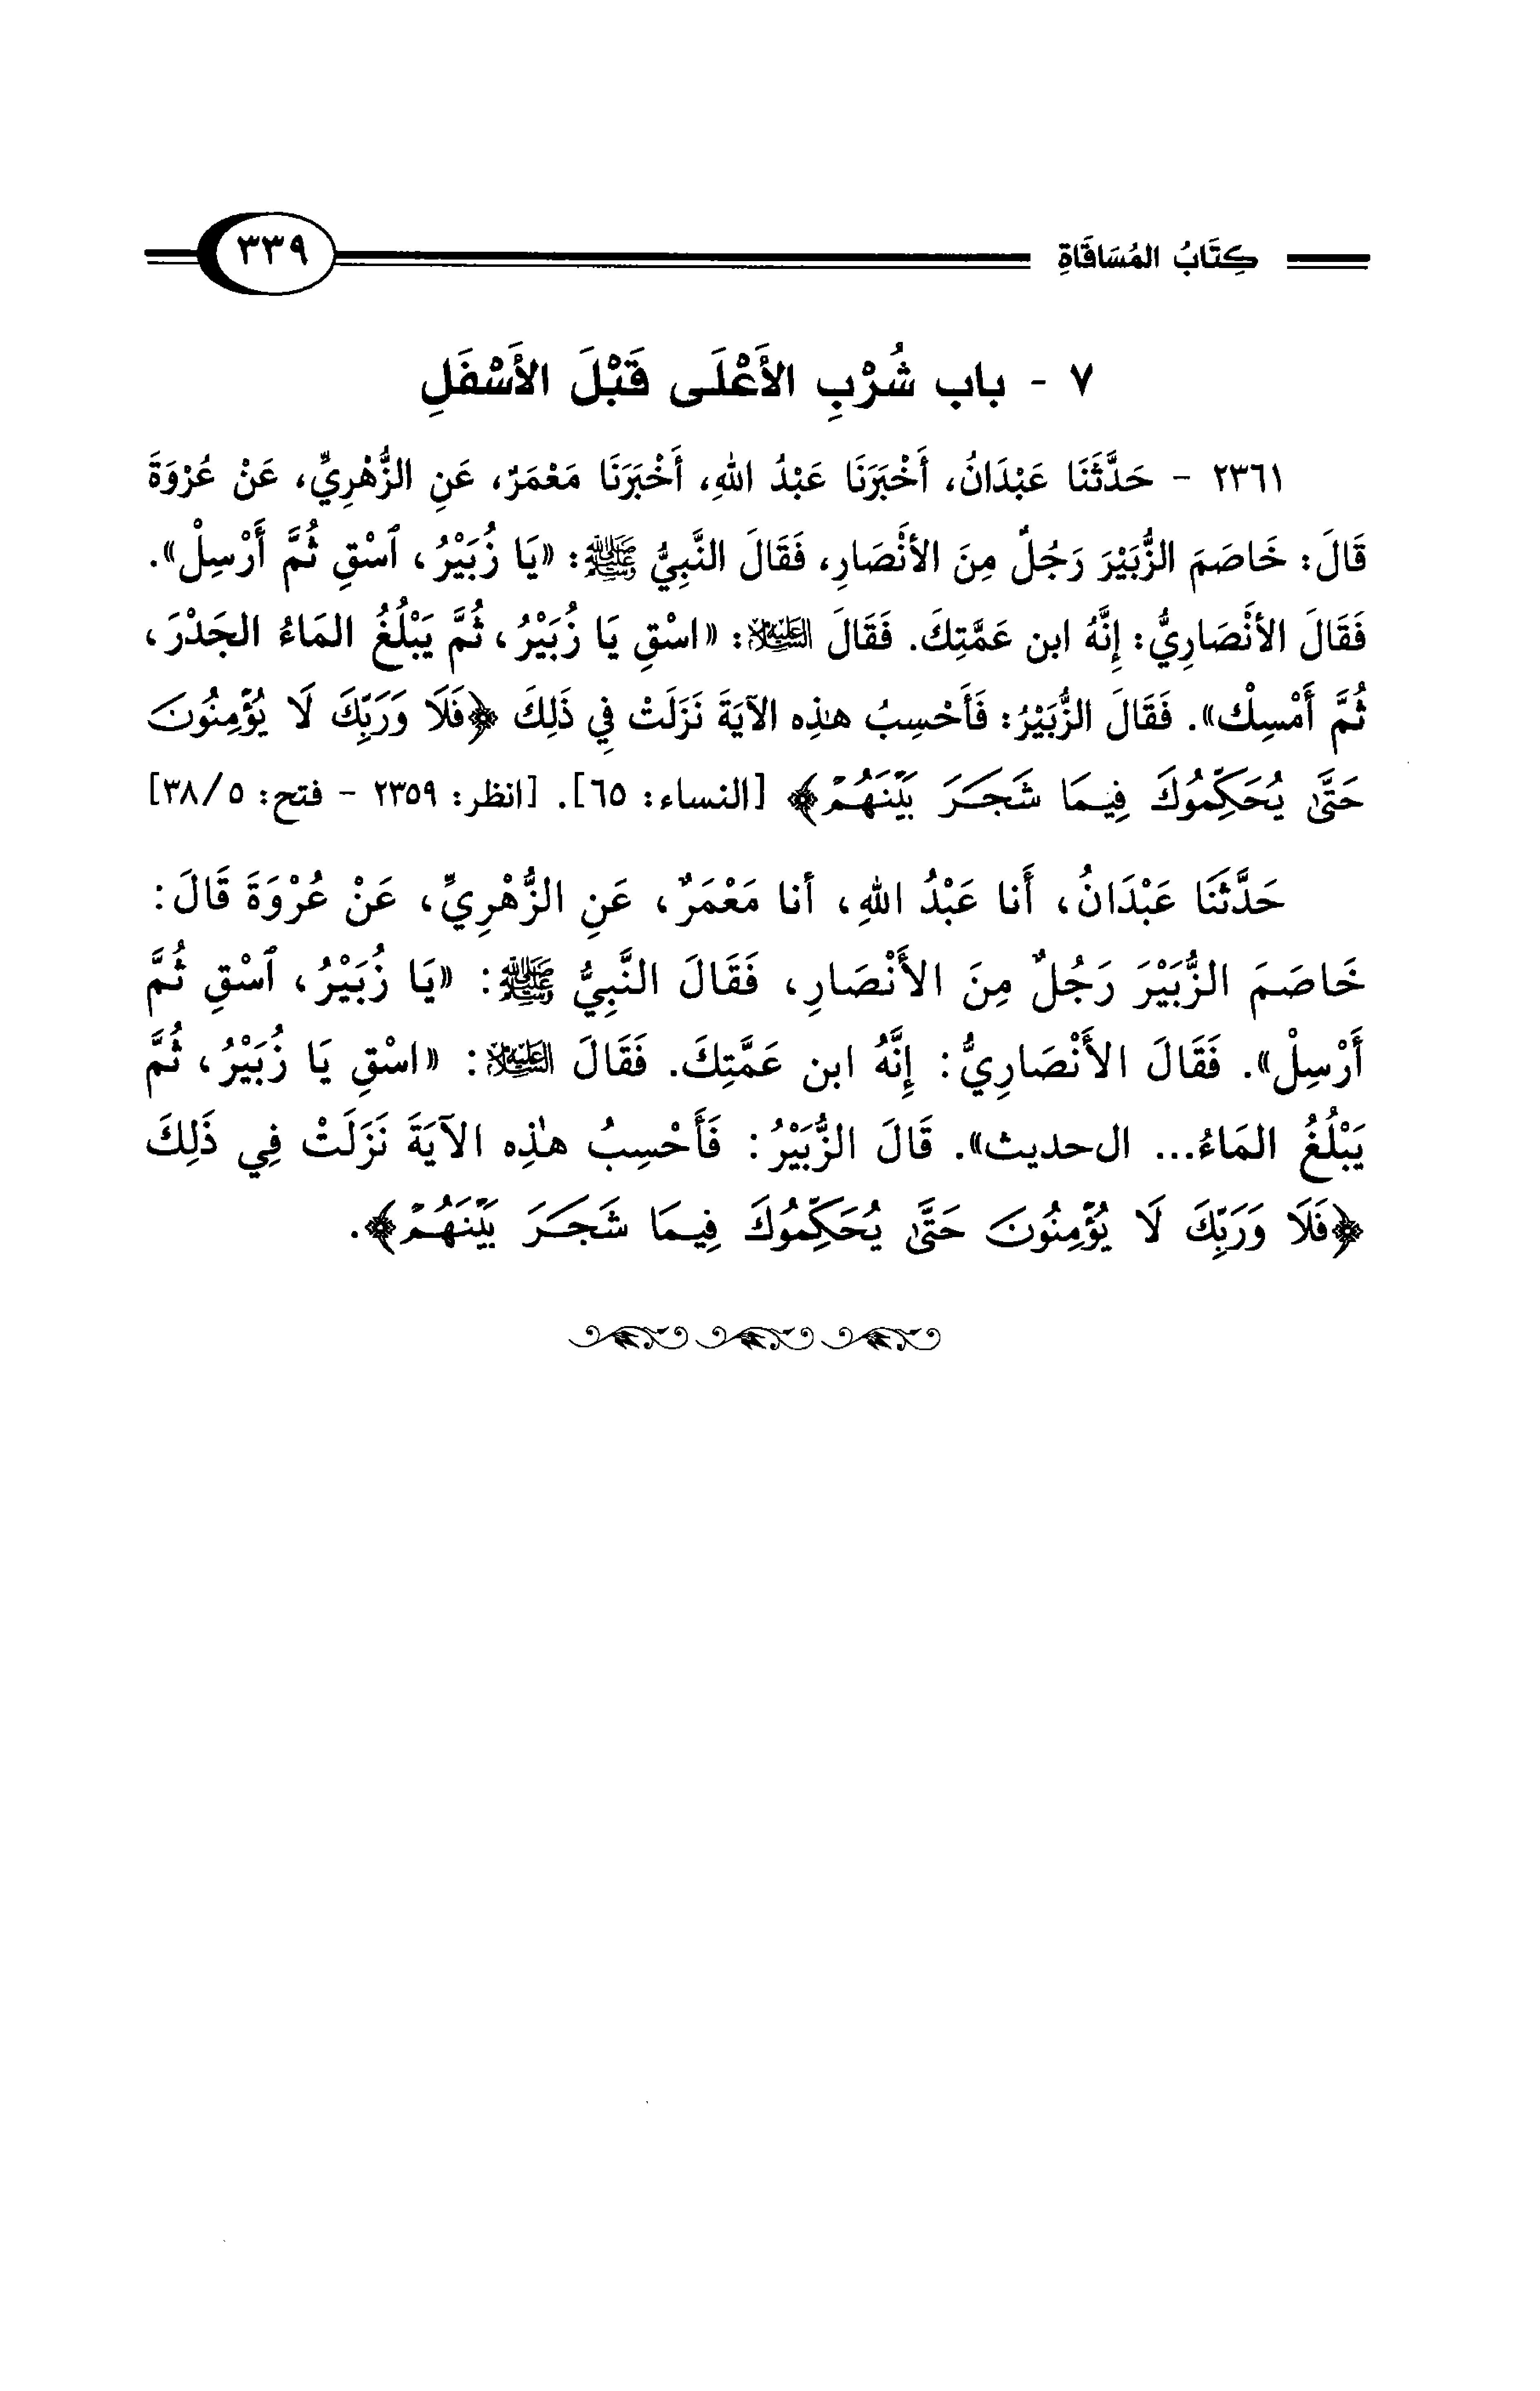 كِتَابُ المُسَاقَاةِ ٣٣٩
٧ - باب شُرْبِ الأَعْلَى قَبْلَ الأَسْفَلِ
٢٣٦١ - حَدَّثَنَا عَبْدَانُ، أَخْبَرَنَا عَبْدُ اللهِ، أَخْبَرَنَا مَعْمَرٌ، عَنِ الزُّهْرِيِّ، عَنْ عُرْوَةَ
قَالَ: خَاصَمَ الزُّبَيْرَ رَجُلٌ مِنَ الأَنْصَارِ، فَقَالَ النَّبِيُّ ﷺ: «يَا زُبَيْرُ، ٱسْقِ ثُمَّ أَرْسِلْ».
فَقَالَ الأَنْصَارِيُّ: إِنَّهُ ابن عَمَّتِكَ. فَقَالَ عليه السلام: «اسْقِ يَا زُبَيْرُ، ثُمَّ يَبْلُغُ المَاءُ الجَدْرَ،
ثُمَّ أَمْسِكْ». فَقَالَ الزُّبَيْرُ: فَأَحْسِبُ هذِه الآيَةَ نَزَلَتْ فِي ذَلِكَ ﴿فَلَا وَرَبِّكَ لَا يُؤْمِنُونَ
حَتَّىٰ يُحَكِّمُوكَ فِيمَا شَجَرَ بَيْنَهُمْ﴾ [النساء: ٦٥]. [انظر: ٢٣٥٩ - فتح: ٥/٣٨]
حَدَّثَنَا عَبْدَانُ، أَنا عَبْدُ اللهِ، أنا مَعْمَرٌ، عَنِ الزُّهْرِيِّ، عَنْ عُرْوَةَ قَالَ:
خَاصَمَ الزُّبَيْرَ رَجُلٌ مِنَ الأَنْصَارِ، فَقَالَ النَّبِيُّ ﷺ: «يَا زُبَيْرُ، ٱسْقِ ثُمَّ
أَرْسِلْ». فَقَالَ الأَنْصَارِيُّ: إِنَّهُ ابن عَمَّتِكَ. فَقَالَ عليه السلام: «اسْقِ يَا زُبَيْرُ، ثُمَّ
يَبْلُغُ المَاءُ... الحديث». قَالَ الزُّبَيْرُ: فَأَحْسِبُ هذِه الآيَةَ نَزَلَتْ فِي ذَلِكَ
﴿فَلَا وَرَبِّكَ لَا يُؤْمِنُونَ حَتَّىٰ يُحَكِّمُوكَ فِيمَا شَجَرَ بَيْنَهُمْ﴾.